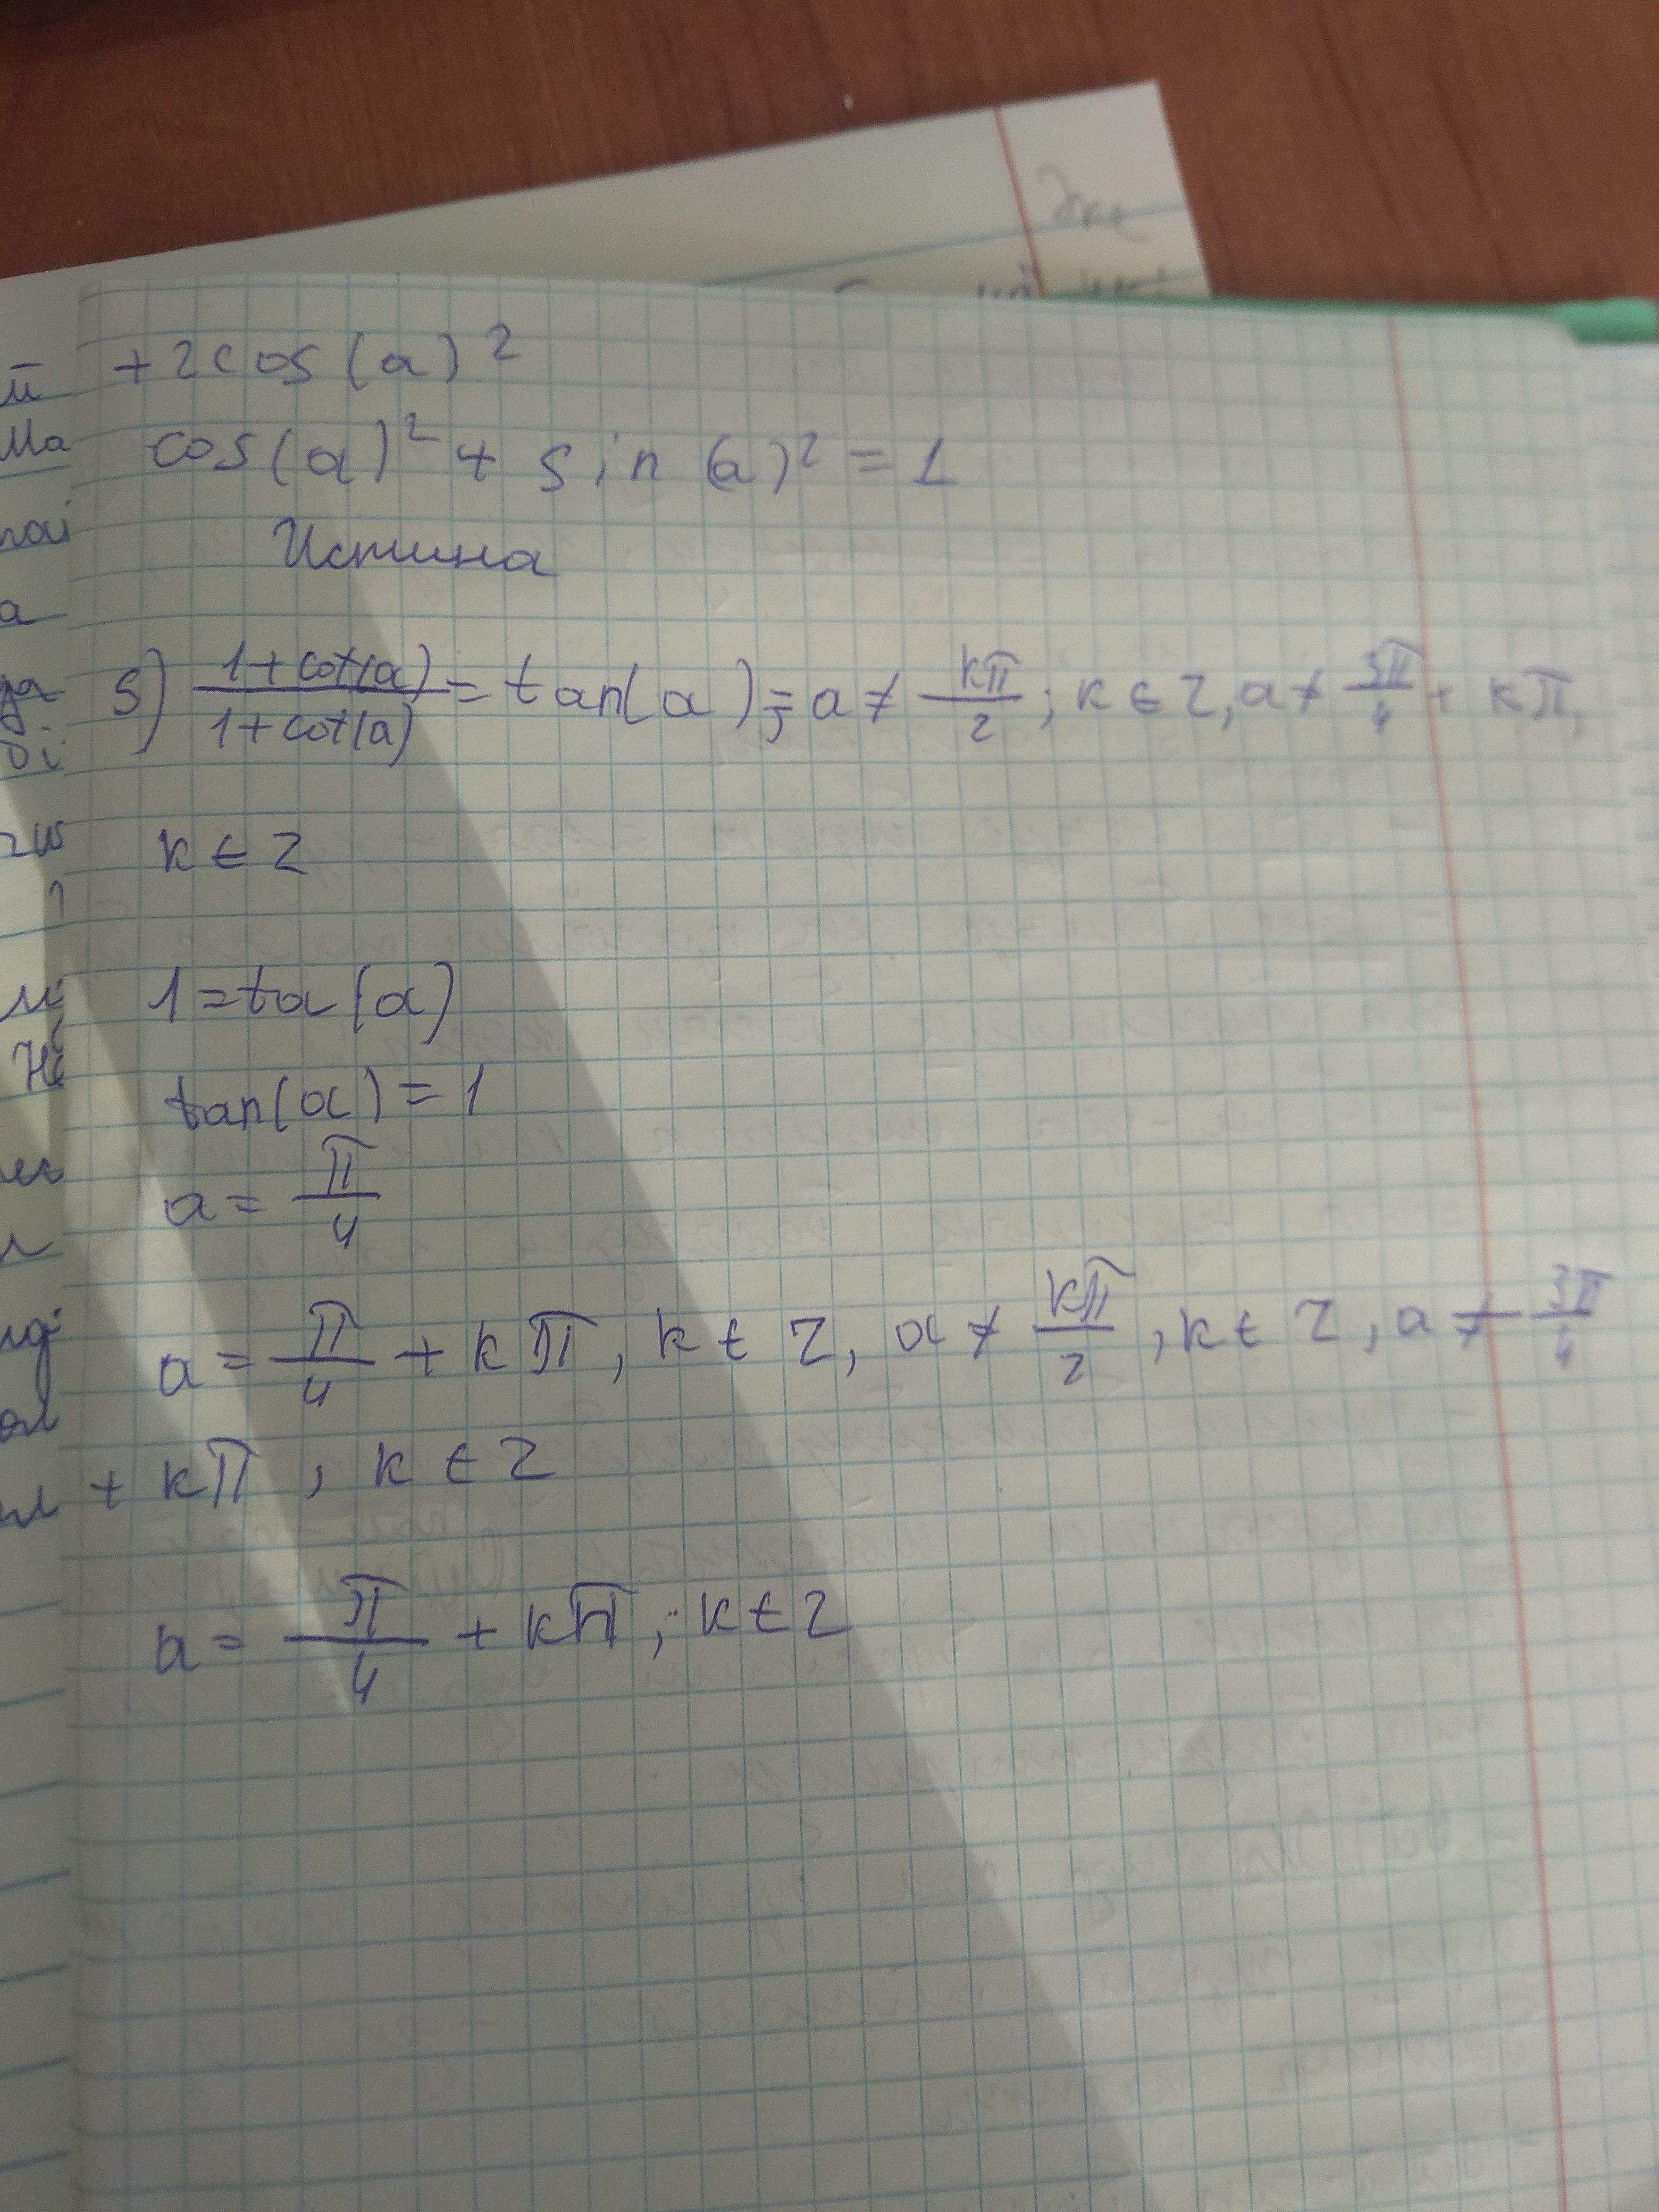 +2cos(a)²
cos(a)² + sin(a)² = 1
Истина
5) 1+cot(a)/1+cot(a) = tan(a); a ≠ kπ/2; k ∈ Z, a ≠ 3π/4 + kπ,
k ∈ Z
1=ta(a)
tan(a) = 1
a = π/4
a = π/4 + kπ, k ∈ Z, a ≠ kπ/2, k ∈ Z, a ≠ 3π/4
+ kπ, k ∈ Z
a = π/4 + kπ; k ∈ Z